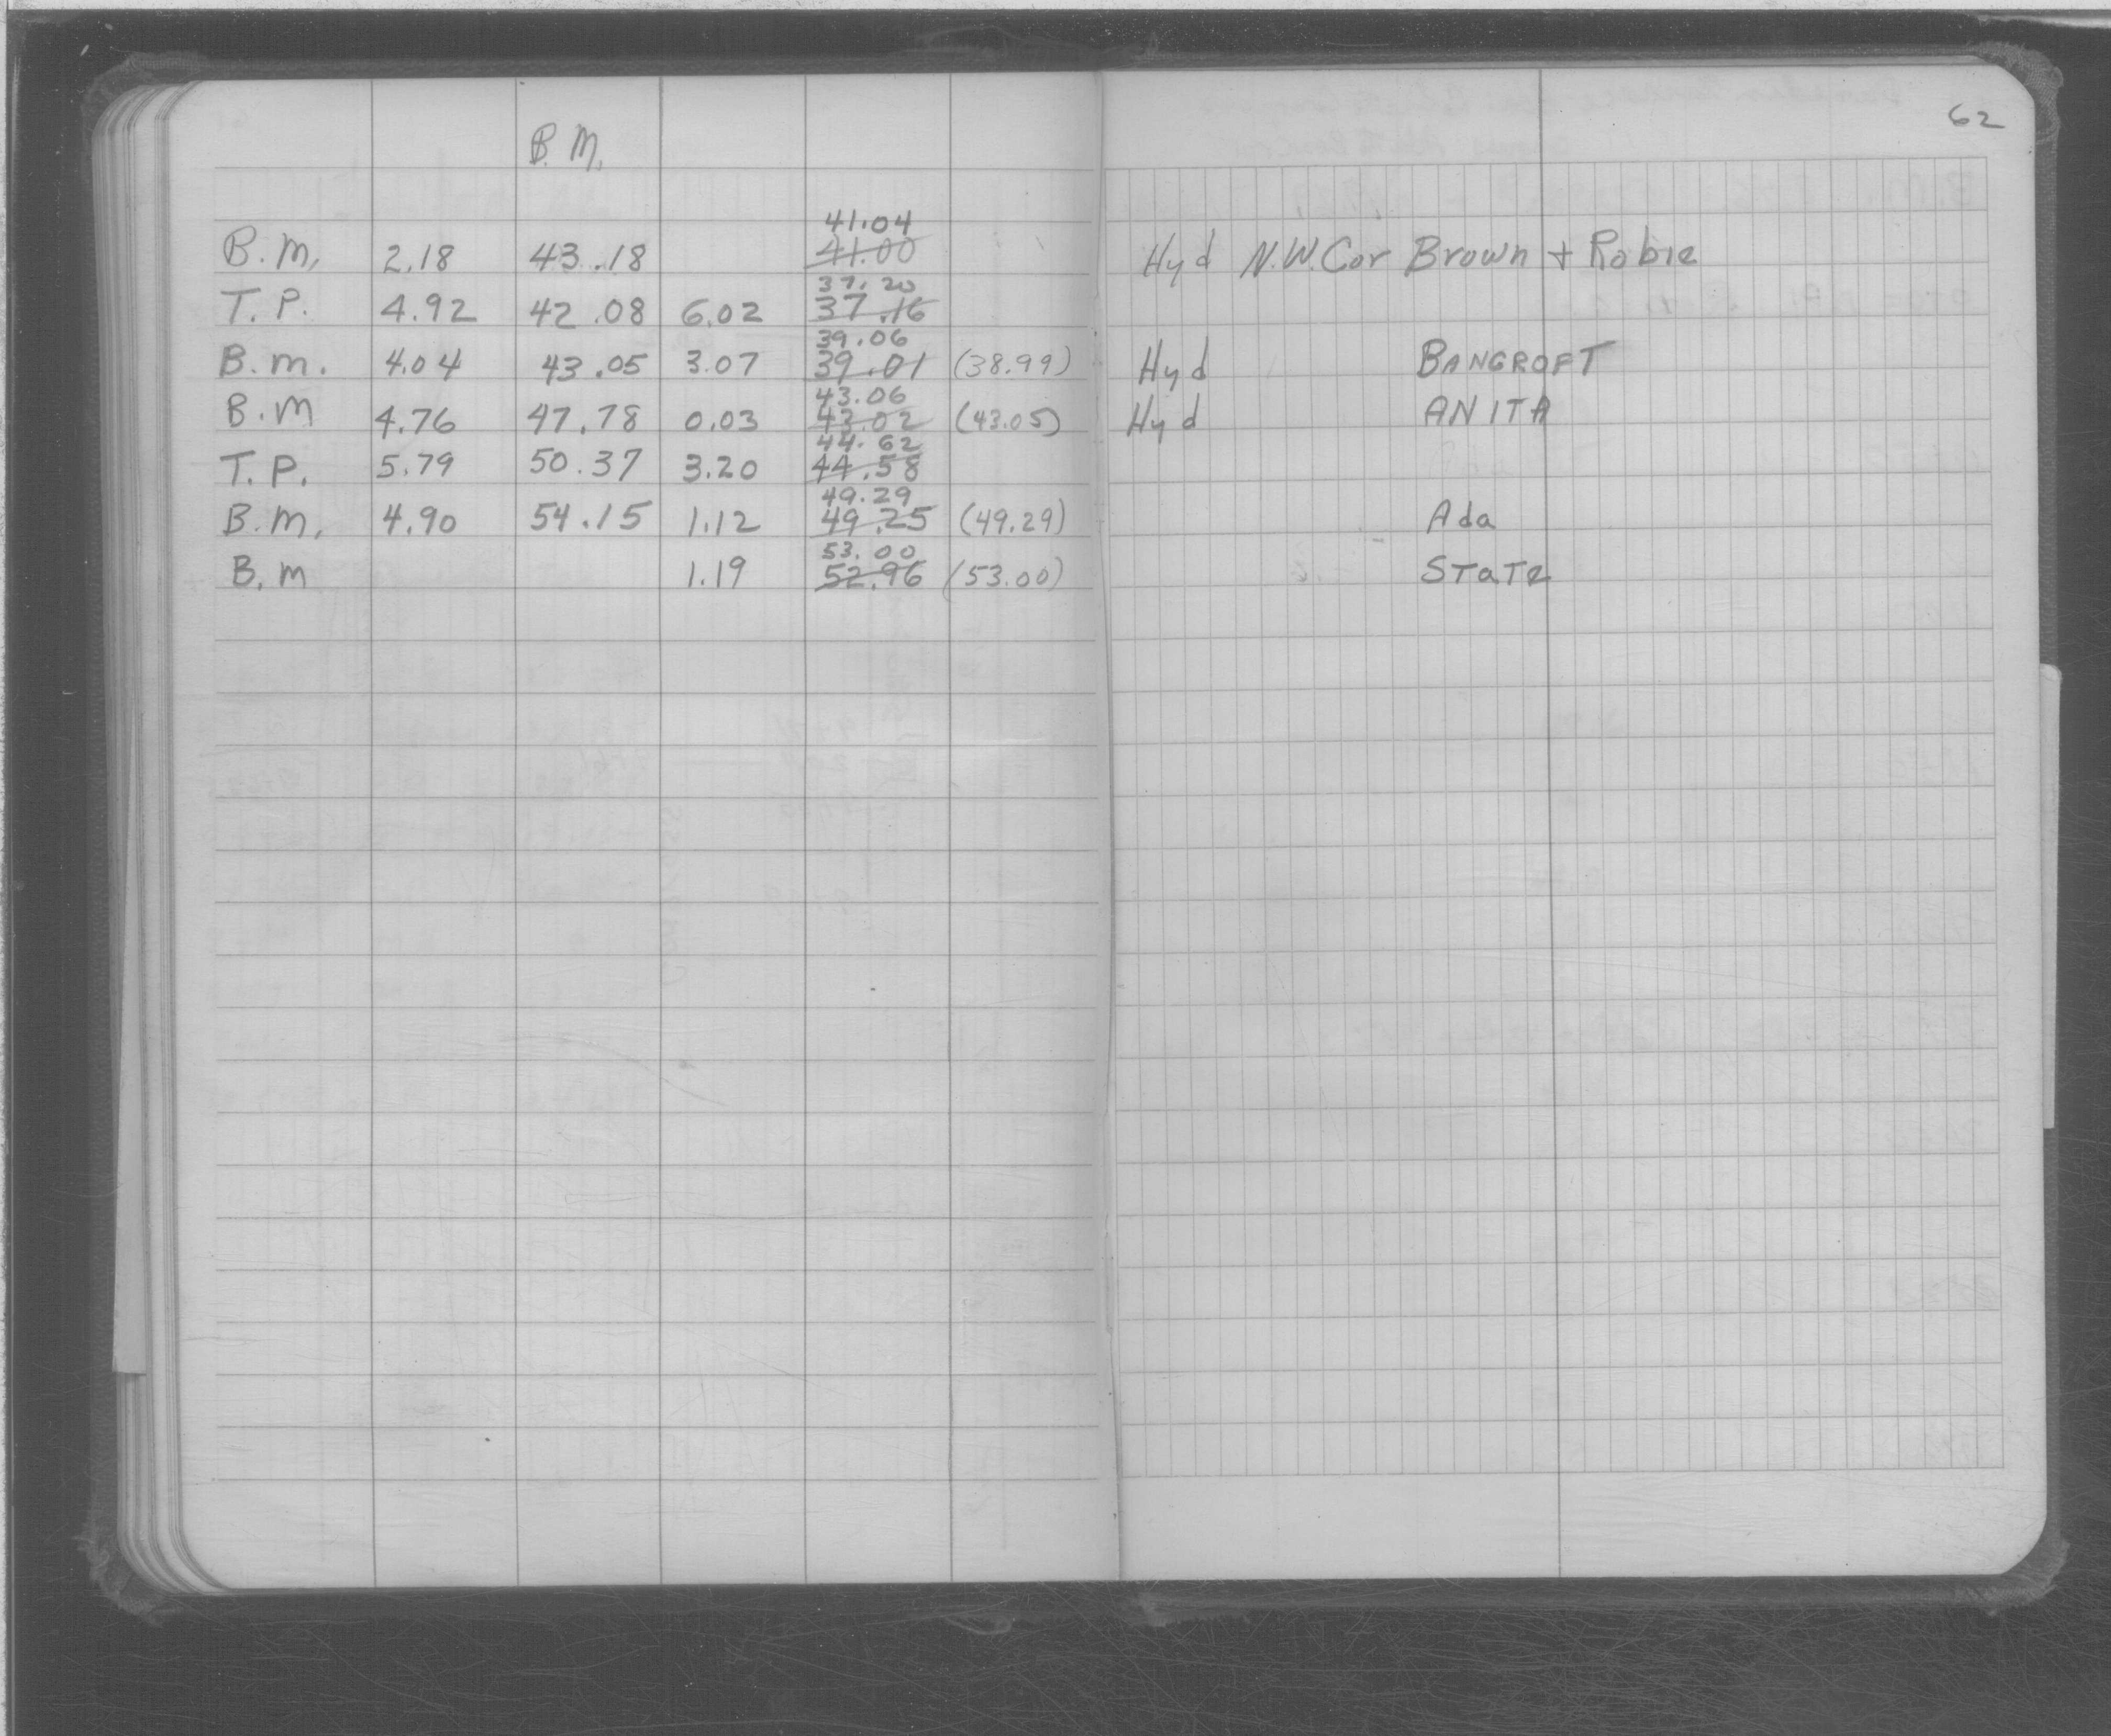 62
B.M.
41.04
B.M. 2.18 43.18 41.00 Hyd N.W. Cor Brown + Robie
37.20
T.P. 4.92 42.08 6.02 37.16
39.06
B.m. 4.04 43.05 3.07 39.01 (38.99) Hyd BANCROFT
43.06
B.M 4.76 47.78 0.03 43.02 (43.05) Hyd ANITA
44.62
T.P. 5.79 50.37 3.20 44.58
49.29
B.M. 4.90 54.15 1.12 49.25 (49.29) Ada
53.00
B.M 1.19 52.96 (53.00) STaTe